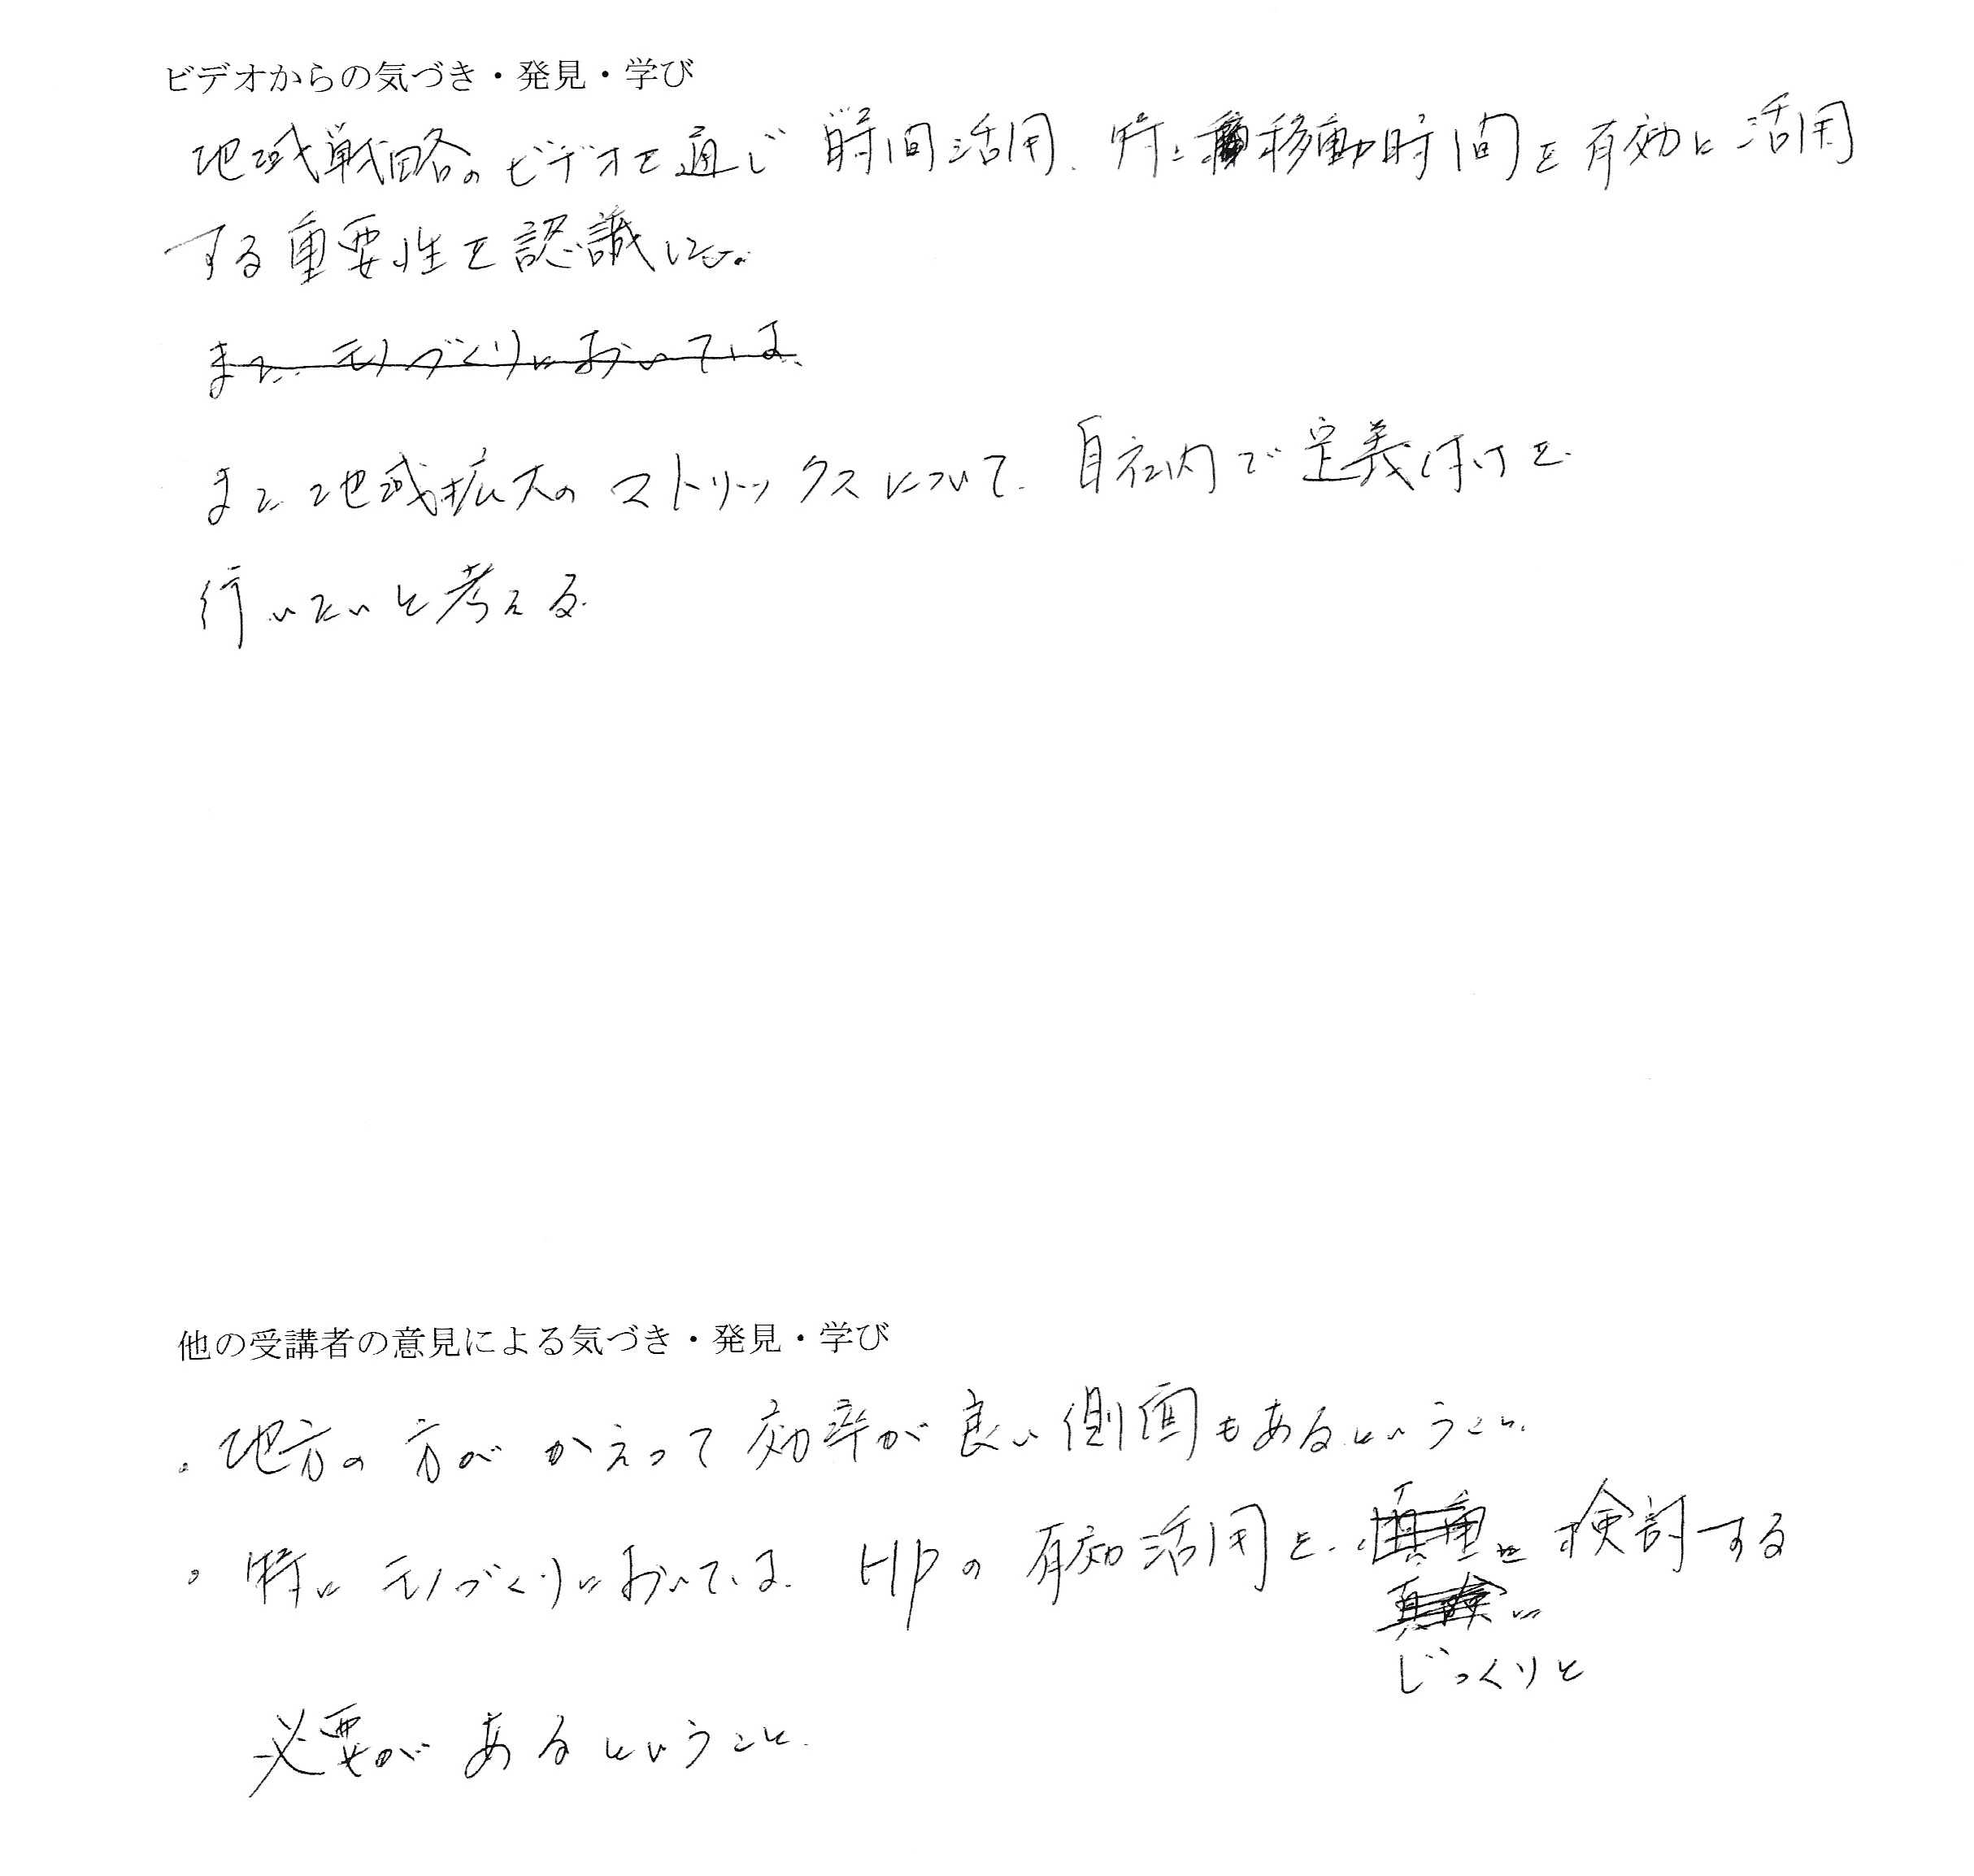 ビデオからの気づき・発見・学び
地域戦略のビデオを通じ時間活用、特に移動時間を有効に活用
する重要性を認識した。
また、モノづくりにおいては、
また地域拡大のマトリックスについて、自社内で定義付けを
行いたいと考える。
他の受講者の意見による気づき・発見・学び
・地方の方がかえって効率が良い側面もあるということ。
・特にモノづくりにおいては、HPの有効活用を、慎重に検討する
真剣に
じっくりと
必要があるということ。